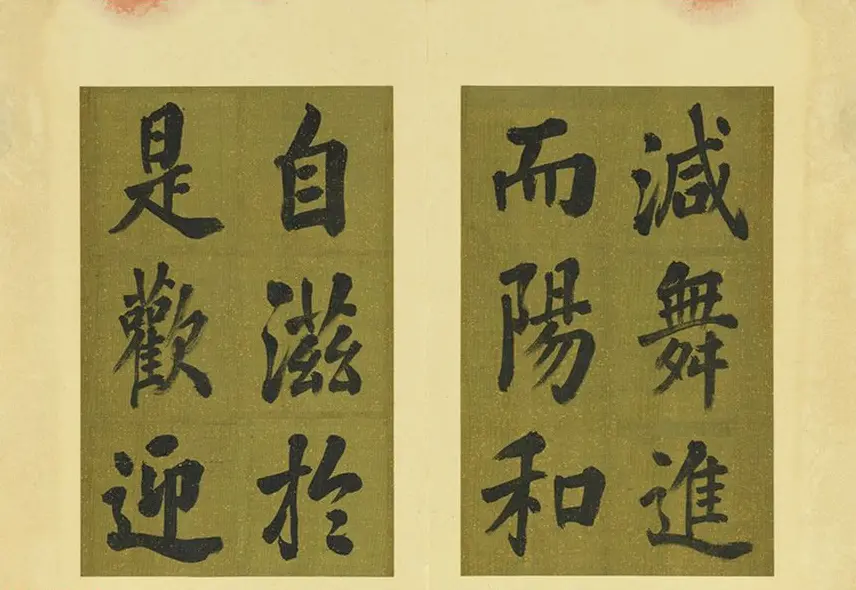 減舞進
而陽和
自滋於
是歡迎